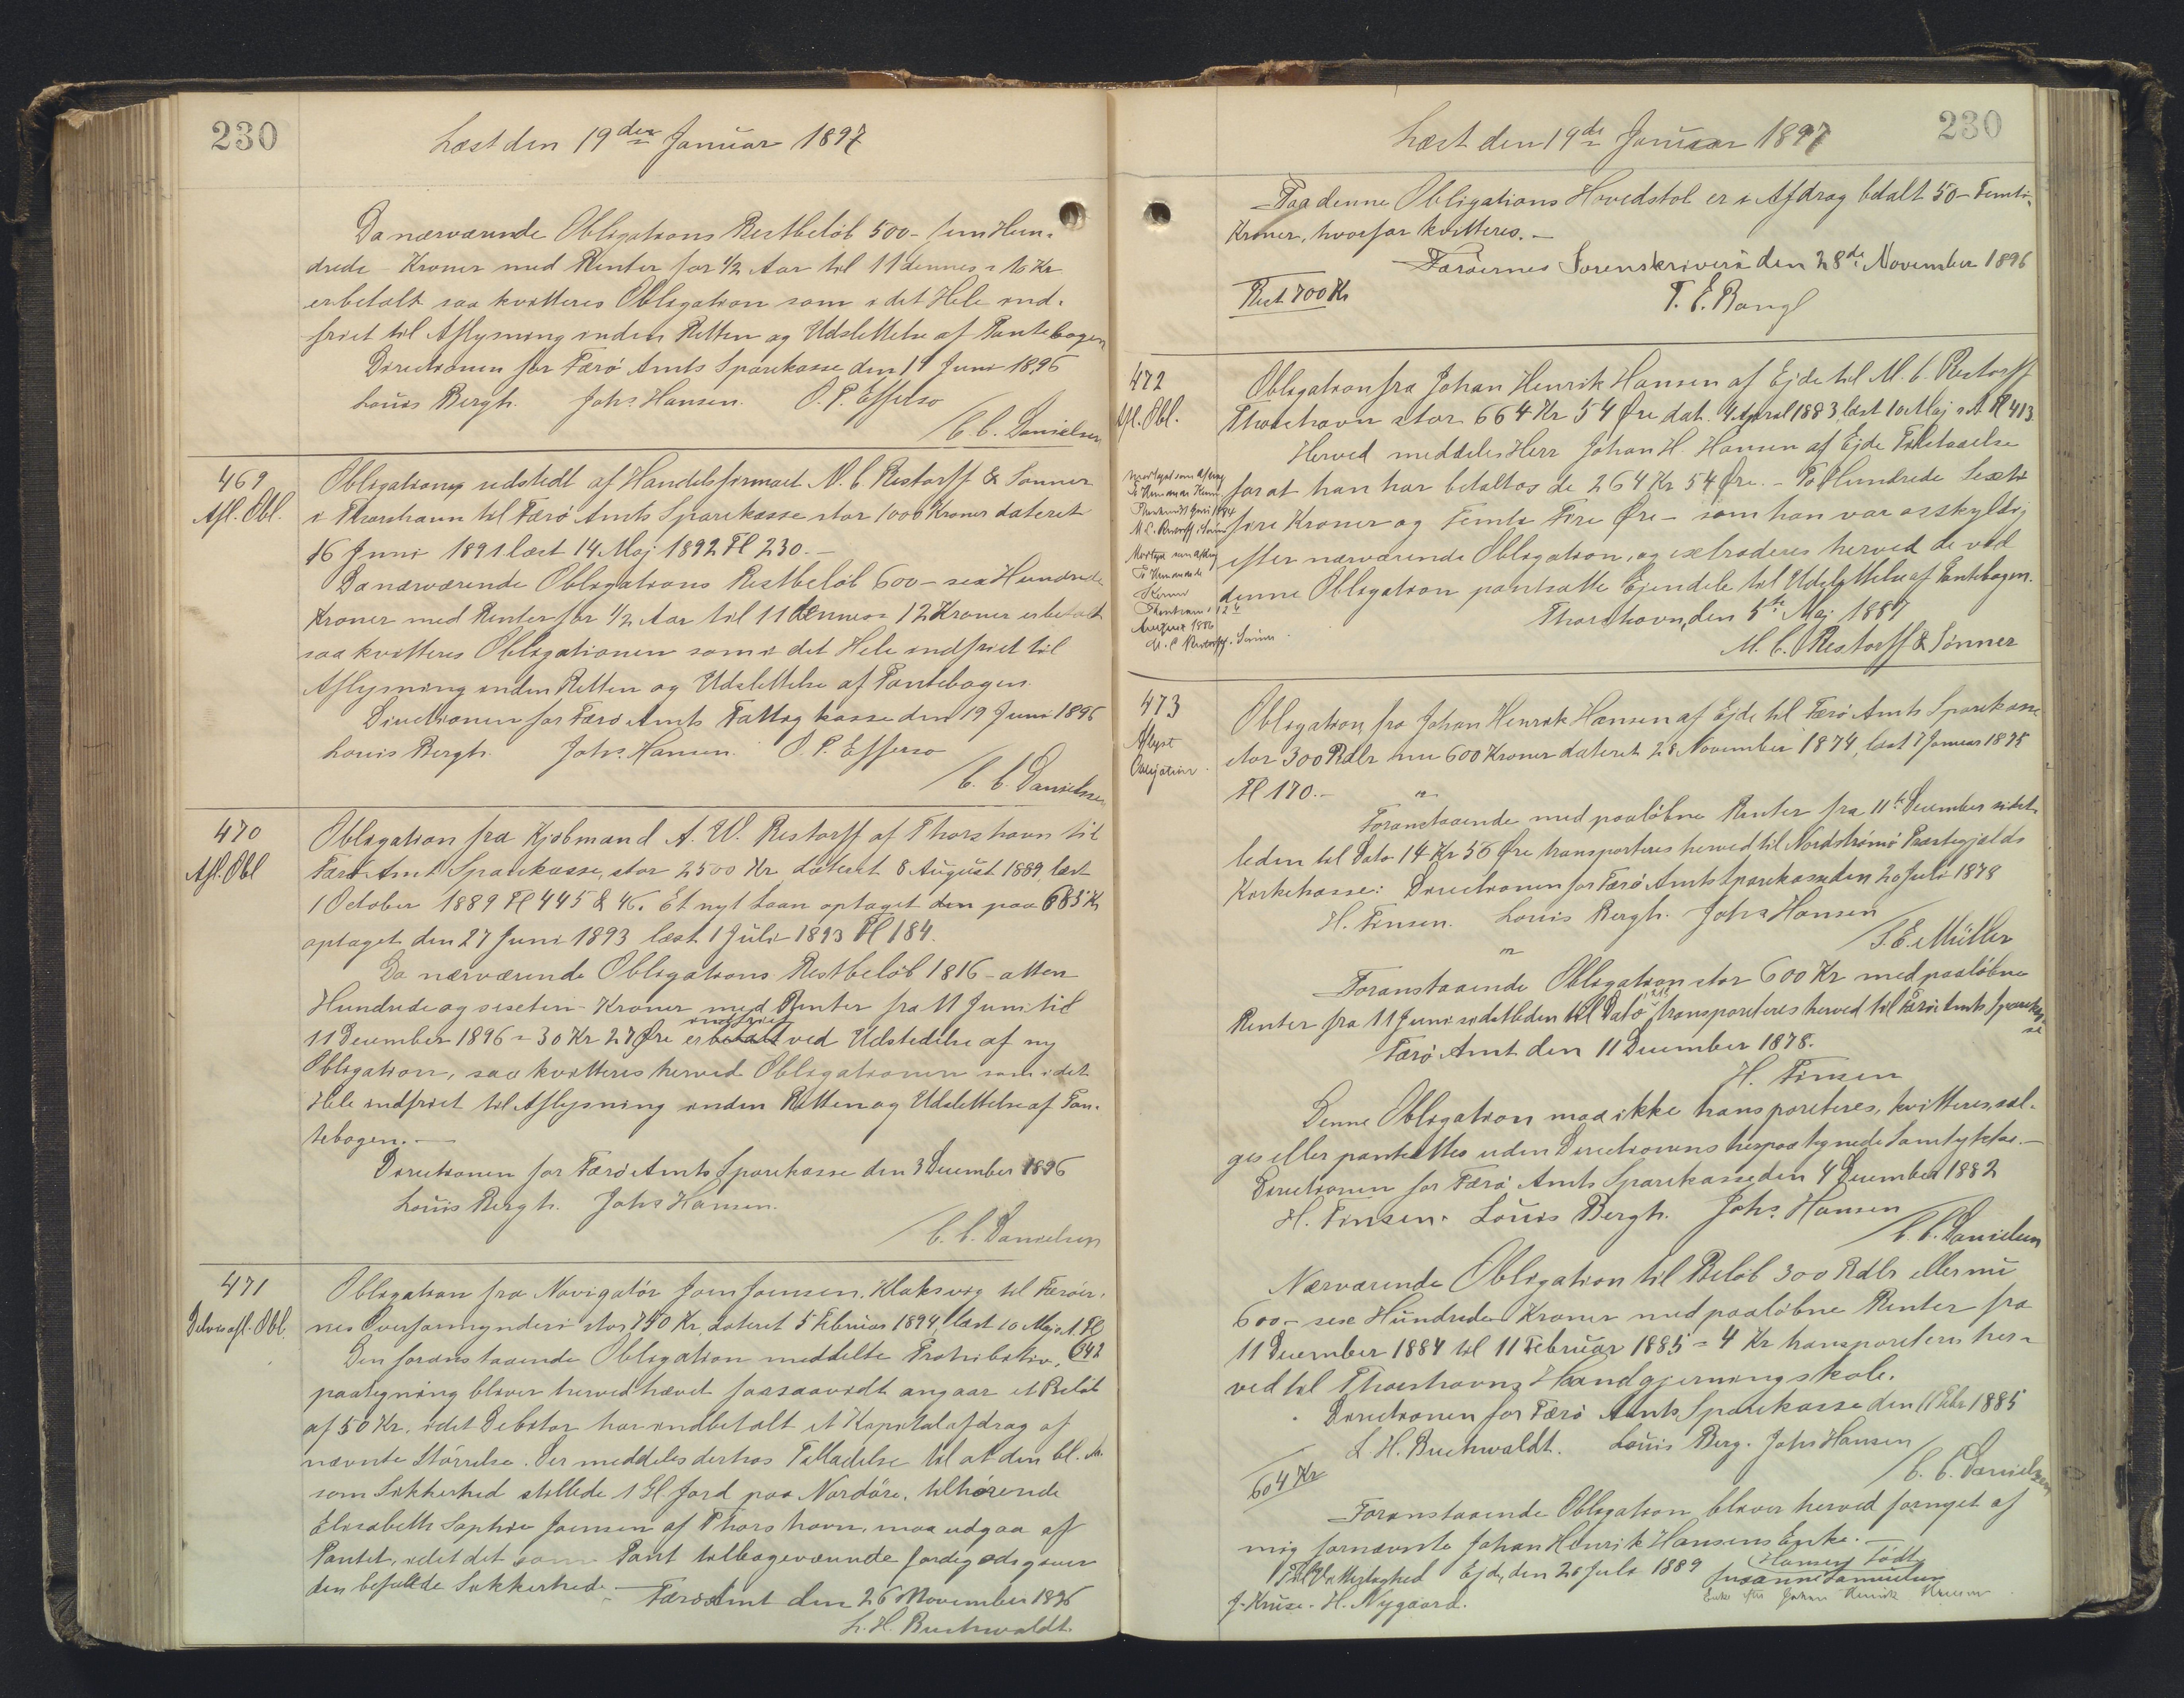 230
Læst den 19den Januar 1897
Da nærværende Obligations Restbeløb 500 - fem Hun-
drede - Kroner med Renter for 1/2 Aar til 11 dennes = 10 Kr
er betalt saa kvitteres Obligation som i det Hele ind-
friet til Aflysning inden Retten og Udslettelse af Pantebogen
Directionen for Færø Amts Sparekasse den 19 Juni 1896
Louis Bergh. Johs Hansen. O. P. Effersø
/C. C. Danielsen
469
Afl. Obl.
Obligation udstedt af Handelsfirmaet M. C. Restorff & Sønner
i Thorshavn til Færø Amts Sparekasse stor 1000 Kroner dateret
16 Juni 1891 læst 14 Maj 1892 Fl 230.-
Da nærværende Obligations Restbeløb 600 - sex Hundrede
Kroner med Renter for 1/2 Aar til 11 dennes = 12 Kroner er betalt
saa kvitteres Obligationen som i det Hele indfriet til
Aflysning inden Retten og Udslettelse af Pantebogen.
Directionen for Færø Amts Fattigkasse den 19 Juni 1896
Louis Bergh. Johs. Hansen. O. P. Effersø
/C. C. Danielsen
470
Afl. Obl
Obligation fra Kjøbmand A. W. Restorff af Thorshavn til
Færø Amts Sparekasse, stor 2500 Kr dateret 8 August 1889, læst
1 October 1889 Fl 445 & 46. Et nyt Laan optaget den paa 685 Kr
optaget den 27 Juni 1893 læst 1 Juli 1893 Fl 184.
Da nærværende Obligations Restbeløb 1816 - atten
Hundrede og sexten - Kroner med Renter fra 11 Juni til
11 December 1896 = 30 Kr 27 Øre er betalt indfriet ved Udstedelse af ny
Obligation, saa kvitteres herved Obligationen som i det
Hele indfriet til Aflysning inden Retten og Udslettelse af Pan-
tebogen.-
Directionen for Færø Amts Sparekasse den 3 December 1896
Louis Bergh. Johs Hansen.
/C. C. Danielsen
471
Delvis afl. Obl.
Obligation fra Navigatør Joen Joensen, Klaksvig til Færøer-
nes Overformynderi stor 750 Kr, dateret 5 Februar 1894, læst 10 Maj s. A. Fl
Den foranstaaende Obligation meddelte Prohibitiv- 342
paategning bliver herved hævet forsaavidt angaar et Beløb
af 50 Kr. idet Debitor har indbetalt et Kapitalafdrag af
nævnte Størrelse. Der meddeles derhos Tilladelse til at den bl. A.
som Sikkerhed stillede 1 Gl. Jord paa Nordøre, tilhørende
Elisabeth Sophie Joensen af Thorshavn, maa udgaa af
Pantet, idet det som Pant tilbageværende færdig
den befalede Sikkerhed.-
Færø Amt den 26 November 1896
L. H. Buchwaldt.
230
Læst den 19de Januar 1897
Paa denne Obligations Hovedstol er i Afdrag betalt 50 - Femti-
Kroner, hvorfor kvitteres.-
Færøernes Sorenskriveri den 28de November 1896
Rest 700 Kr
T. E. Bang
472
Afl. Obl.
Obligation fra Johan Henrik Hansen af Ejde til M. C. Restorff
Thorshavn stor 664 Kr 54 Øre dat. 4 April 1883, læst 10 Maj s. A. Fl 413.
Herved meddeles Herr Johan H. Hansen af Ejde Tilstaaelse
for at han har betalt os de 264 Kr 54 Øre.- To Hundrede Sexti
fire Kroner og Femti Fire Øre - som han var os skyldig
efter nærværende Obligation, og extraderes herved de ved
denne Obligation pantsatte Ejendele til Udslettelse af Pantebogen.
Thorshavn, den 5te Maj 1887
M. C. Restorff & Sønner
August 1886
473
Aflyst
Obligation
Obligation, fra Johan Henrik Hansen af Ejde til Færø Amts Sparekasse
stor 300 Rdlr nu 600 Kroner dateret 28 November 1874, læst 7 Januar 1875
Fl 170.-
Foranstaaende med paaløbne Renter fra 11te December sidst-
leden til Dato 14 Kr 56 Øre transporteres herved til Nordstrømø Præstegjelds
Kirkekasse: Directionen for Færø Amts Sparekasse den 20 Juli 1878
H. Finsen. Louis Bergh. Johs Hansen
/S. E. Müller
Foranstaaende Obligation stor 600 Kr med paaløbne
Renter fra 11 Juni sidstleden til Dato, transporteres herved til Færø Amts Spareka-
se
Færø Amt den 11 December 1878.
H. Finsen
Denne Obligation maa ikke transporteres, kvitteres, sæl-
ges eller pantsættes uden Directionens herpaa tegnede Samtykke.-
Directionen for Færø Amts Sparekasse den 4 December 1882
H. Finsen. Louis Bergh. Johs. Hansen
/C. C. Danielsen
Nærværende Obligation til Beløb 300 Rdlr eller nu
600 - sex Hundrede Kroner med paaløbne Renter fra
11 December 1884 til 11 Februar 1885 = 4 Kr transporteres her-
ved til Thorshavns Haandgjerningsskole.
Directionen for Færø Amts Sparekasse den 11 Febr 1885
L. H. Buchwaldt. Louis Berg. Johs Hansen
604 Kr
/C. C. Danielsen
Foranstaaende Obligation bliver herved fornyet af
mig fornævnte Johan Henrik Hansens Enke.-
Til Vitterlighed Ejde, den 26 Juli 1889
Susanne Hansen født Samuelsen
J. Kruse. H. Nygaard.
Enke efter Johan Henrik Hansen